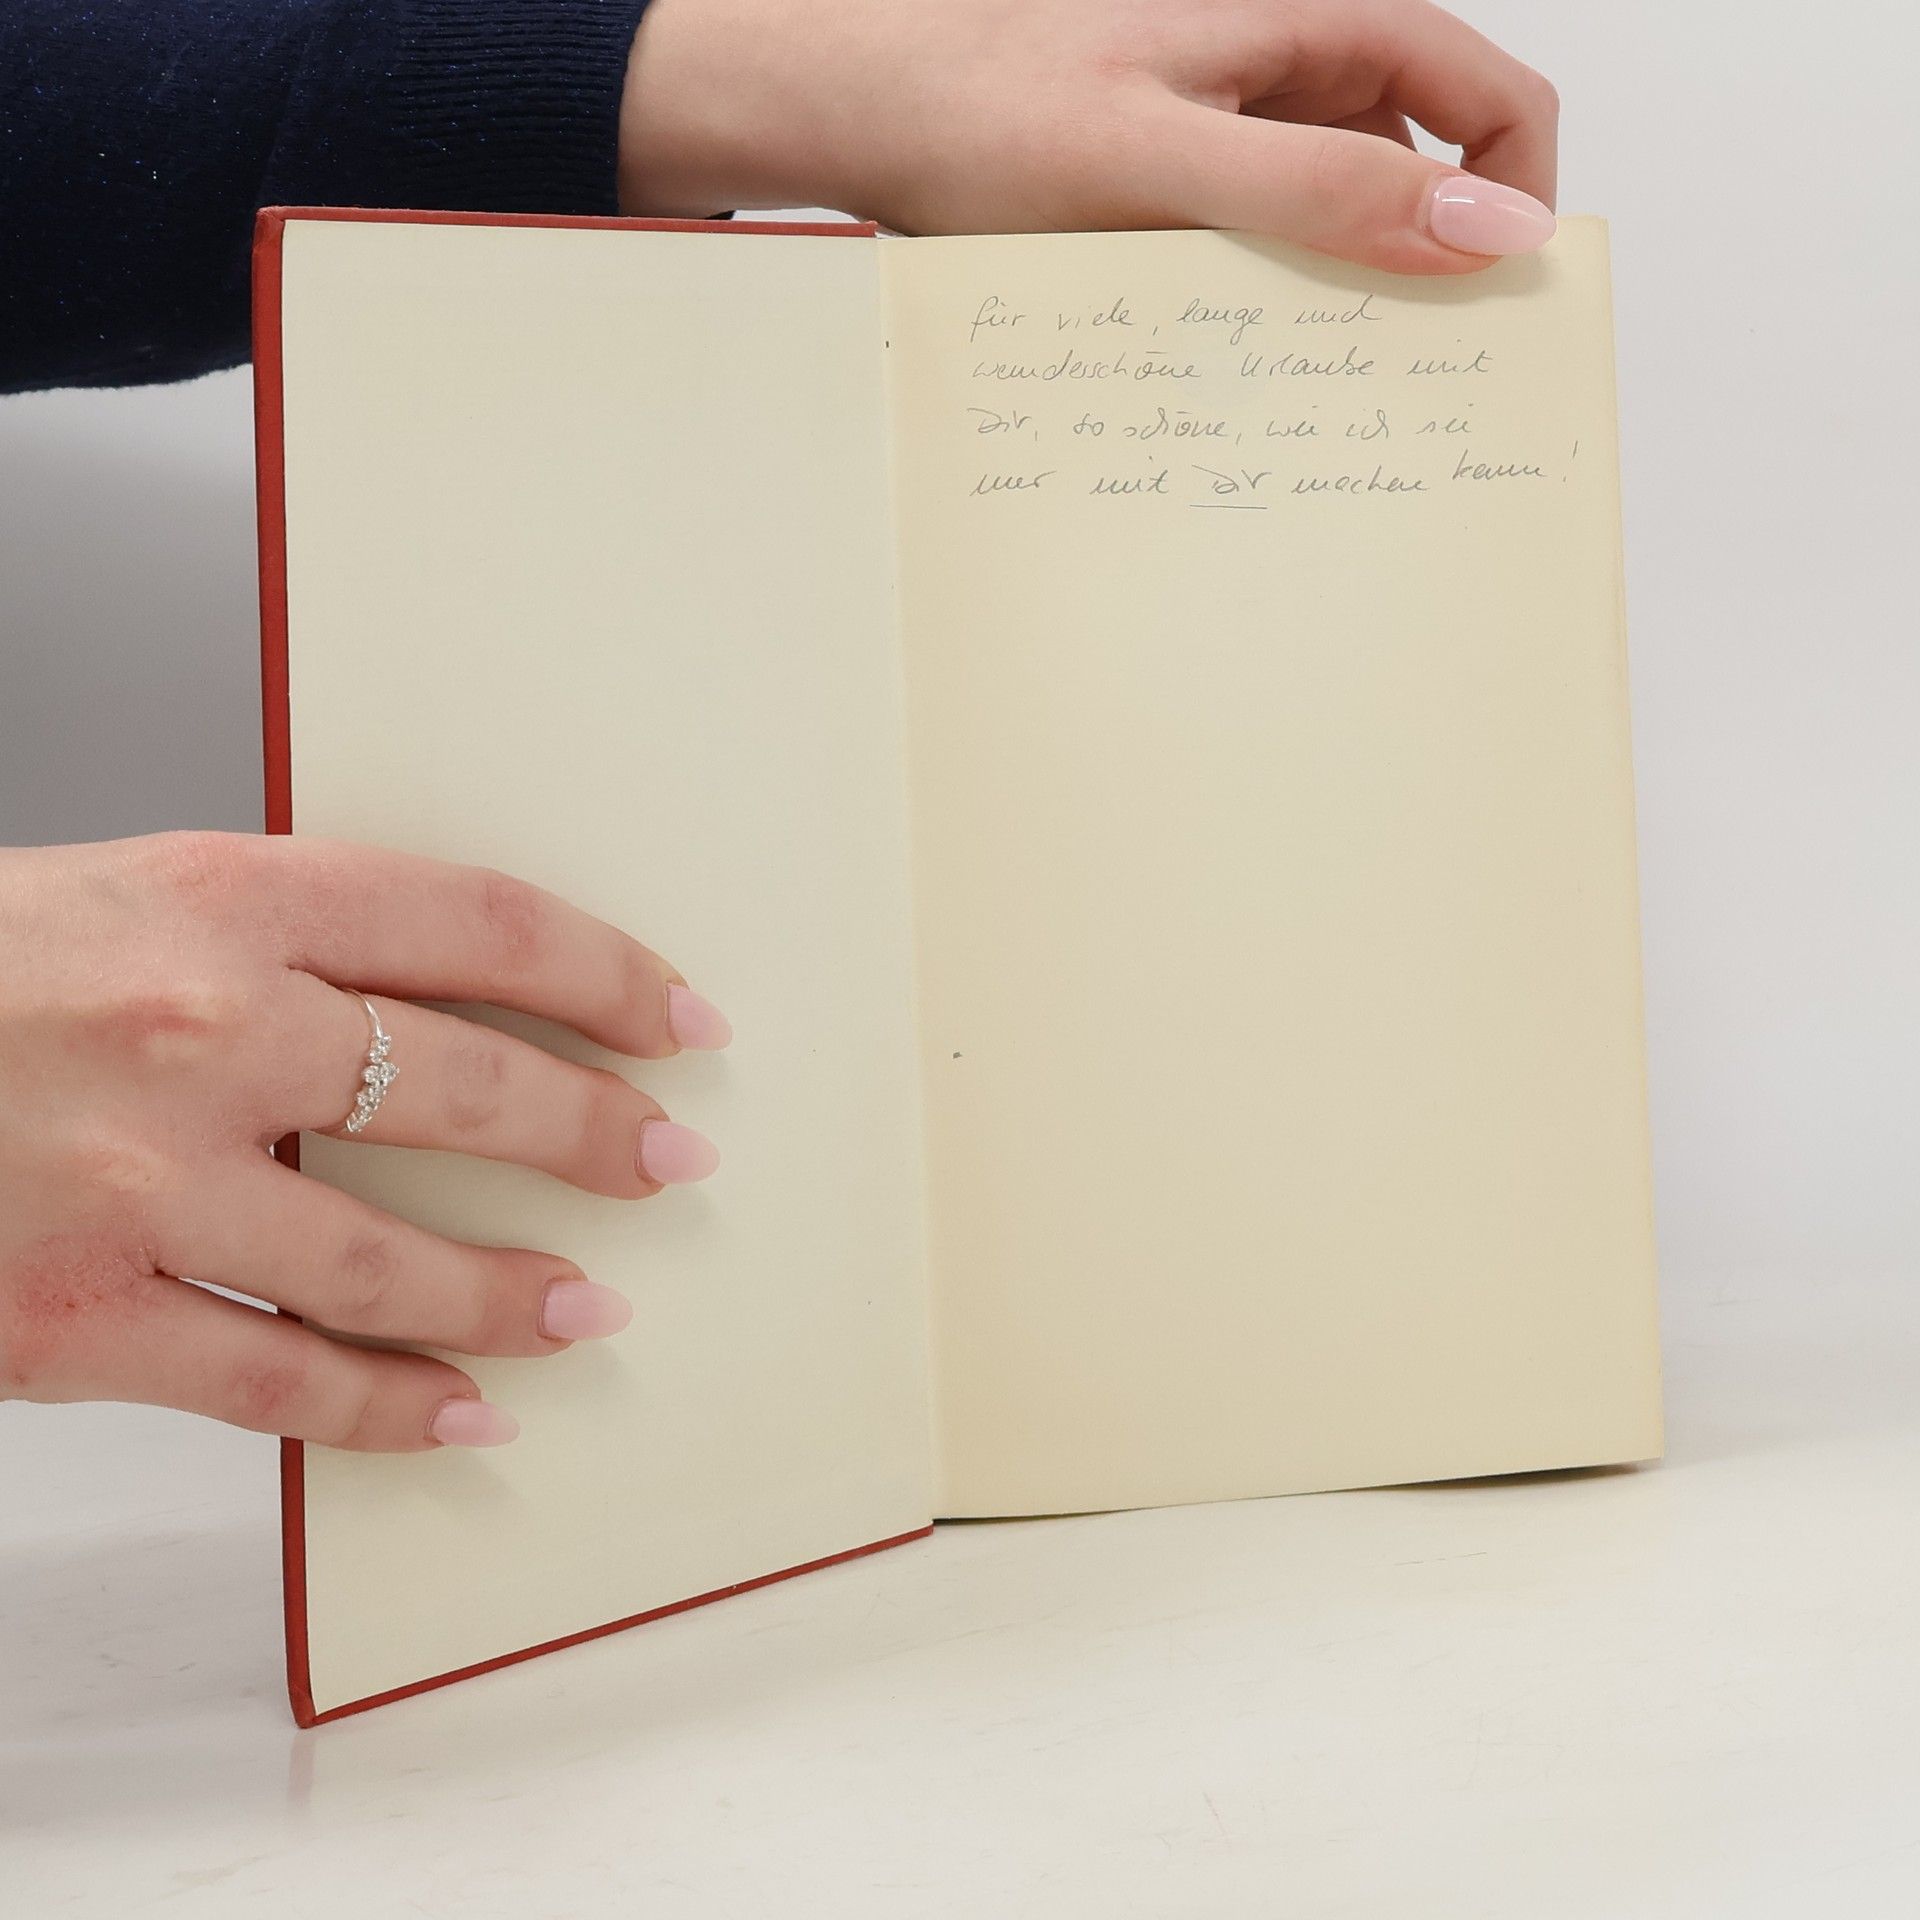 für viele, lange und
wunderschöne Urlaube mit
Dir, so schöne, wie ich sie
nur mit Dir machen kann!